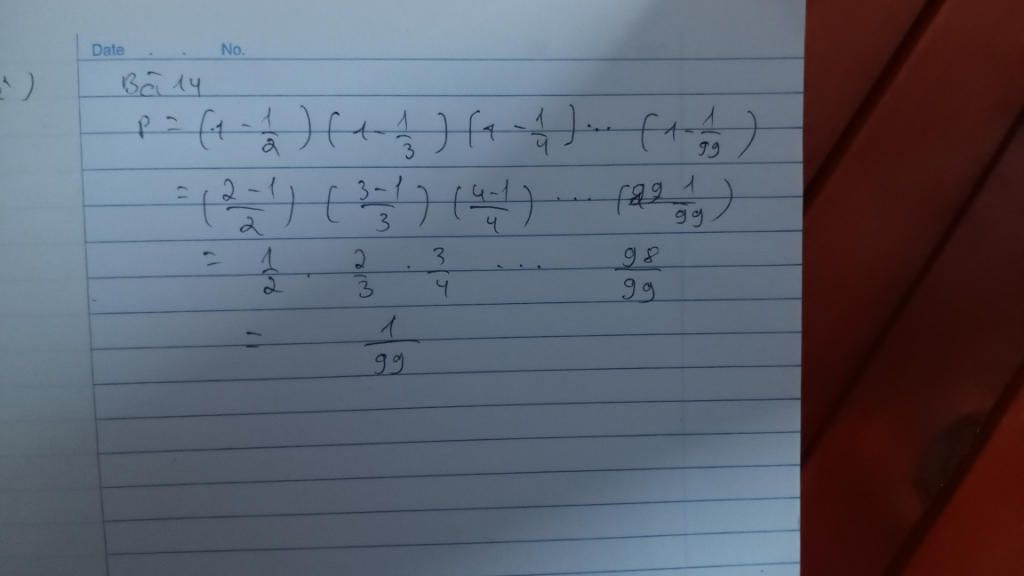 Date . . No.
Bài 14
P = (1 - 1/2) (1 - 1/3) (1 - 1/4) ... (1 - 1/99)
= ((2-1)/2) ((3-1)/3) ((4-1)/4) ... ((99 1)/99)
= 1/2 . 2/3 . 3/4 ... 98/99
= 1/99